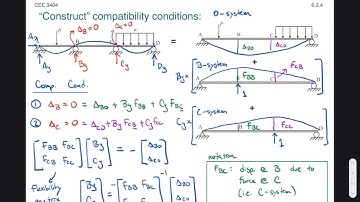 CEE 3404
6.2.4
"Construct" compatibility conditions:
Δ_B = 0 Δ_C = 0
0-system
P
A B C D
Dy
By Cy
=
Δ_B0 Δ_C0
+
By × [ B-system
f_BB f_CB
1 ]
+
Cy × [ C-system
f_BC f_CC
1 ]
Comp. Cond.
① Δ_B = 0 = Δ_B0 + By f_BB + Cy f_BC
② Δ_C = 0 = Δ_C0 + By f_CB + Cy f_CC
[ f_BB f_BC ] [ By ] = - [ Δ_B0 ]
[ f_CB f_CC ] [ Cy ] [ Δ_C0 ]
Flexibility matrix
[ By ] = - [ f_BB f_BC ]⁻¹ [ Δ_B0 ]
notation
f_BC: disp. @ B due to
force @ C
(i.e. C-system)